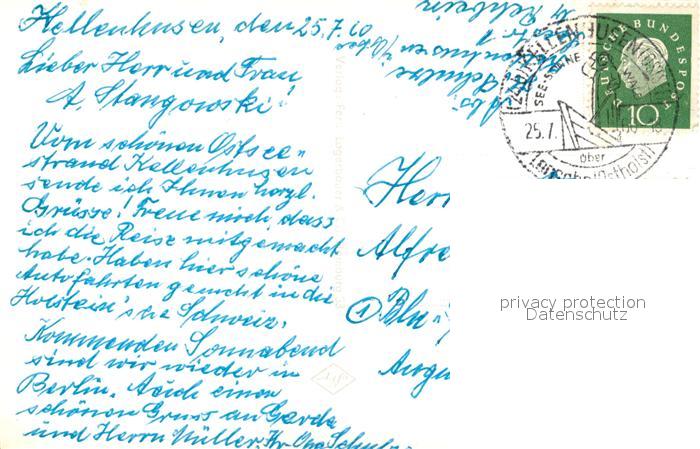 Kellenhusen, den 25.7.60
Lieber Herr und Frau
A. Stangowski!
Vom schönen Ostsee=
strand Kellenhusen
sende ich Ihnen herzl.
Grüsse! Freue mich, dass
ich die Reise mitgemacht
habe. Haben hier schöne
Autofahrten gemacht in die
Holstein'sche Schweiz.
Kommenden Sonnabend
sind wir wieder in
Berlin. Auch einen
schönen Gruss an Gerda
und Herrn Müller. Ihr Opa Schulz
Herr
Alfre
① Bln
Augu
DEUTSCHE BUNDESPOST
10
KELLENHUSEN
SEE-SONNE
WALD
25.7.
über
Lensahn (Ostholst)
Agfa
privacy protection
Datenschutz